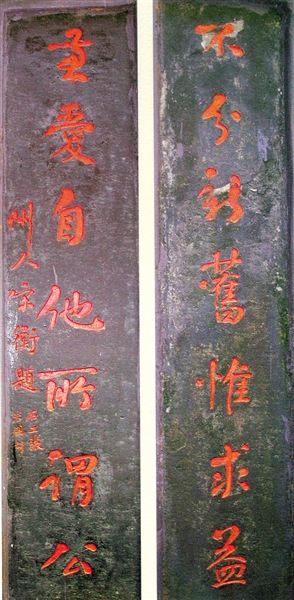 不分新舊惟求益
兼愛自他所謂公
州人宗衡題